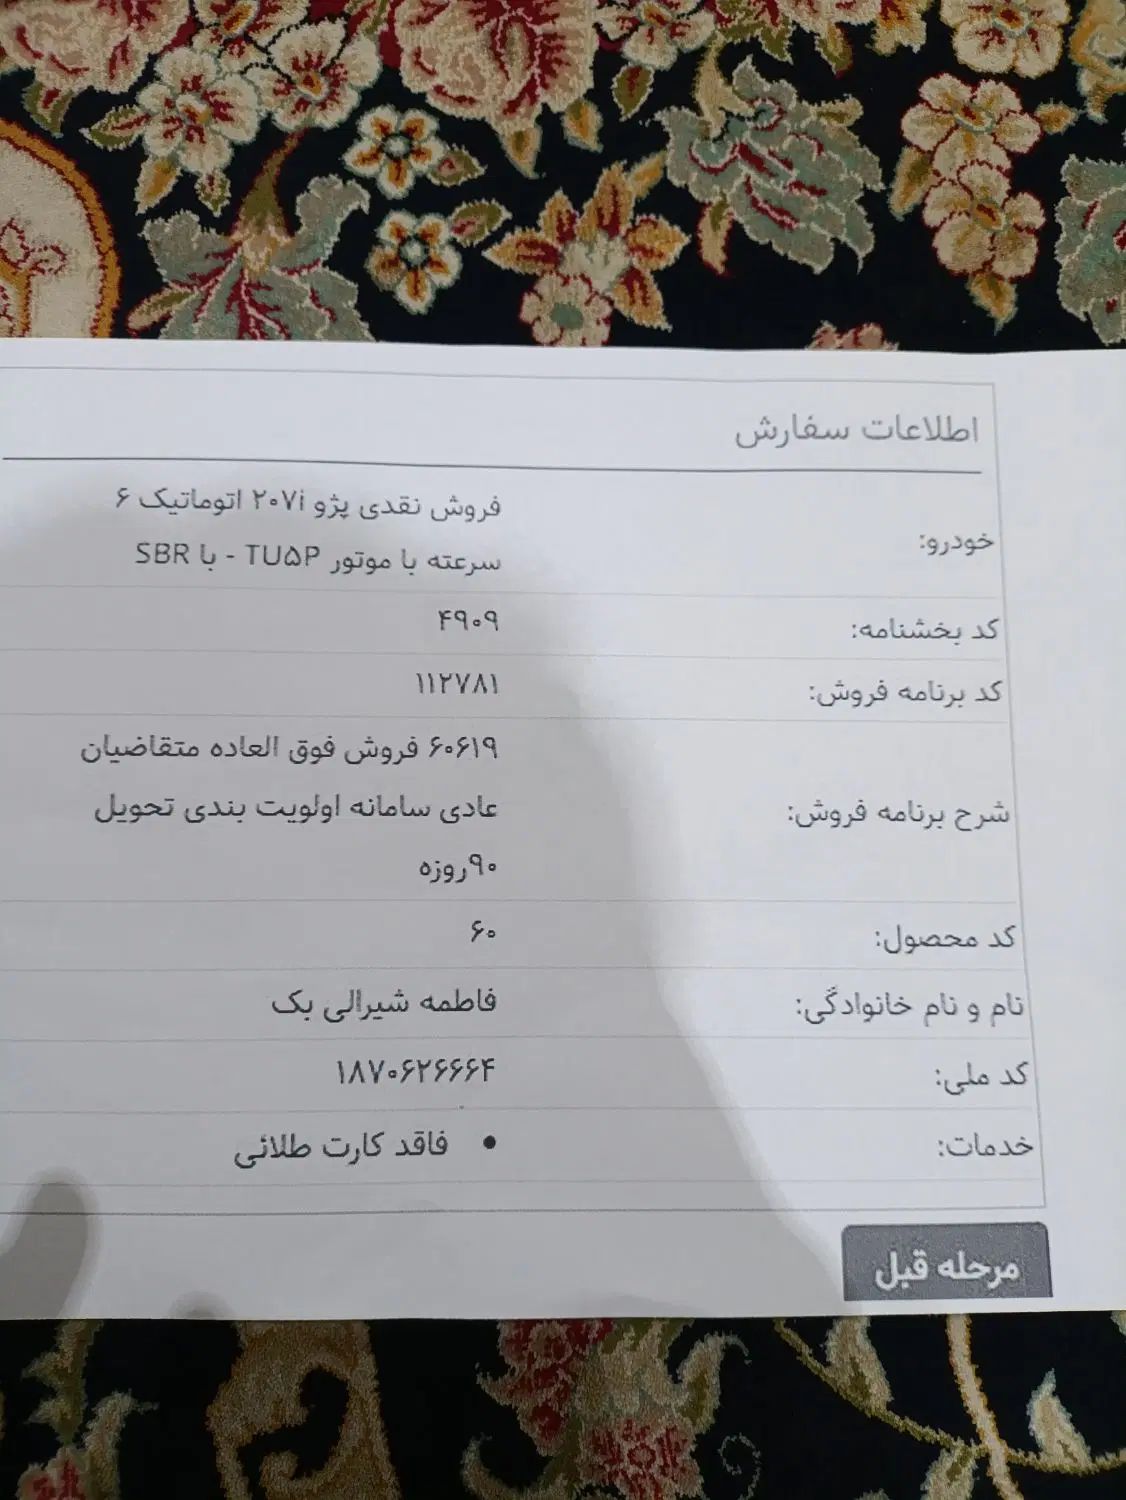 اطلاعات سفارش
خودرو: فروش نقدی پژو ۲۰۷i اتوماتیک ۶
سرعته با موتور TU۵P - با SBR
کد بخشنامه: ۴۹۰۹
کد برنامه فروش: ۱۱۲۷۸۱
شرح برنامه فروش: ۶۰۶۱۹ فروش فوق العاده متقاضیان
عادی سامانه اولویت بندی تحویل
۹۰روزه
کد محصول: ۶۰
نام و نام خانوادگی: فاطمه شیرالی بک
کد ملی: ۱۸۷۰۶۲۶۶۶۴
خدمات: • فاقد کارت طلائی
مرحله قبل